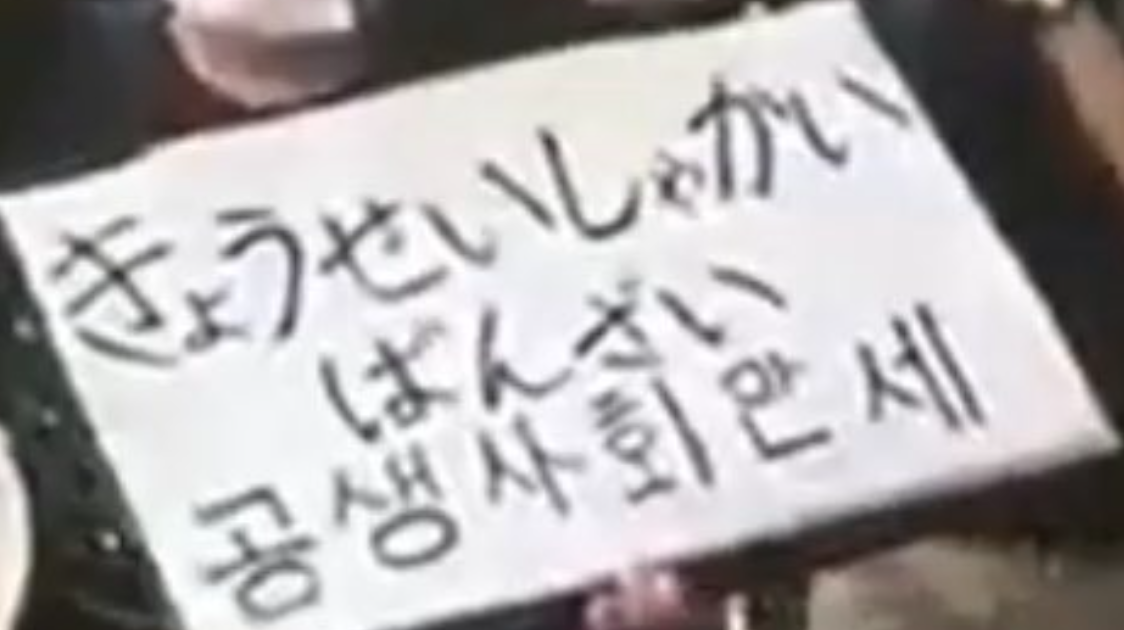 きょうせいしゃかい
ばんざい
공생사회만세